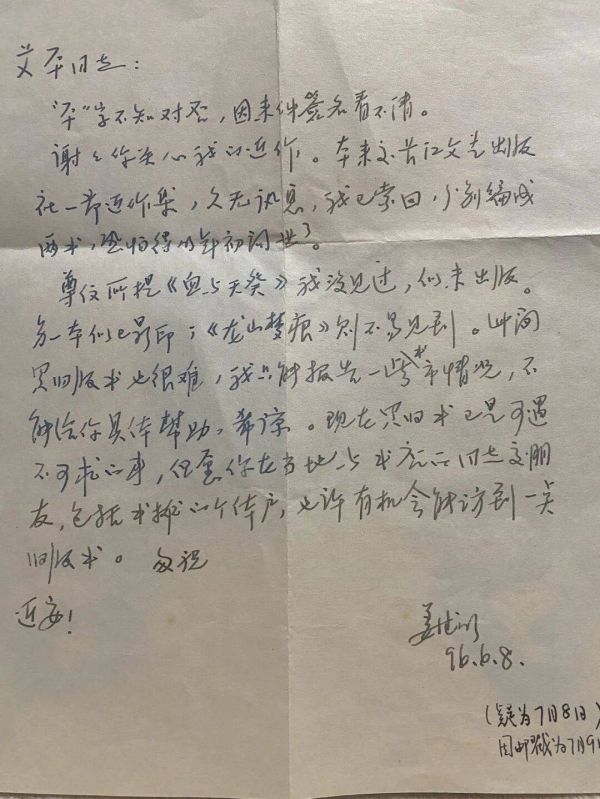 艾平同志：
“平”字不知对否，因来件签名看不清。
谢谢你关心我的近作。本来交长江文艺出版
社一部近作集，久无讯息，我已索回，分别编成
两书，恐怕得明年初问世了。
尊位所提《血与天癸》我没见过，似未出版。
另一本似已影印；《龙山梦痕》则不易见到。此间
买旧版书也很难，我只能报告一些书市情况，不
能给你具体帮助，希谅。现在买旧书已是可遇
不可求的事，但愿你在当地与书店的同志交朋
友，包括书摊的个体户，也许有机会能访到一点
旧版书。匆祝
近安！
姜德明
96.6.8.
（疑为7月8日）
因邮戳为7月9日